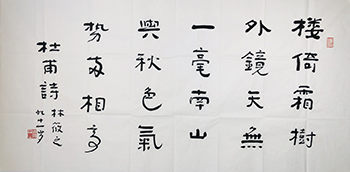 楼倚霜樹
外鏡天無
一毫南山
與秋色氣
勢兩相高
杜甫詩
林筱之
九十一歲